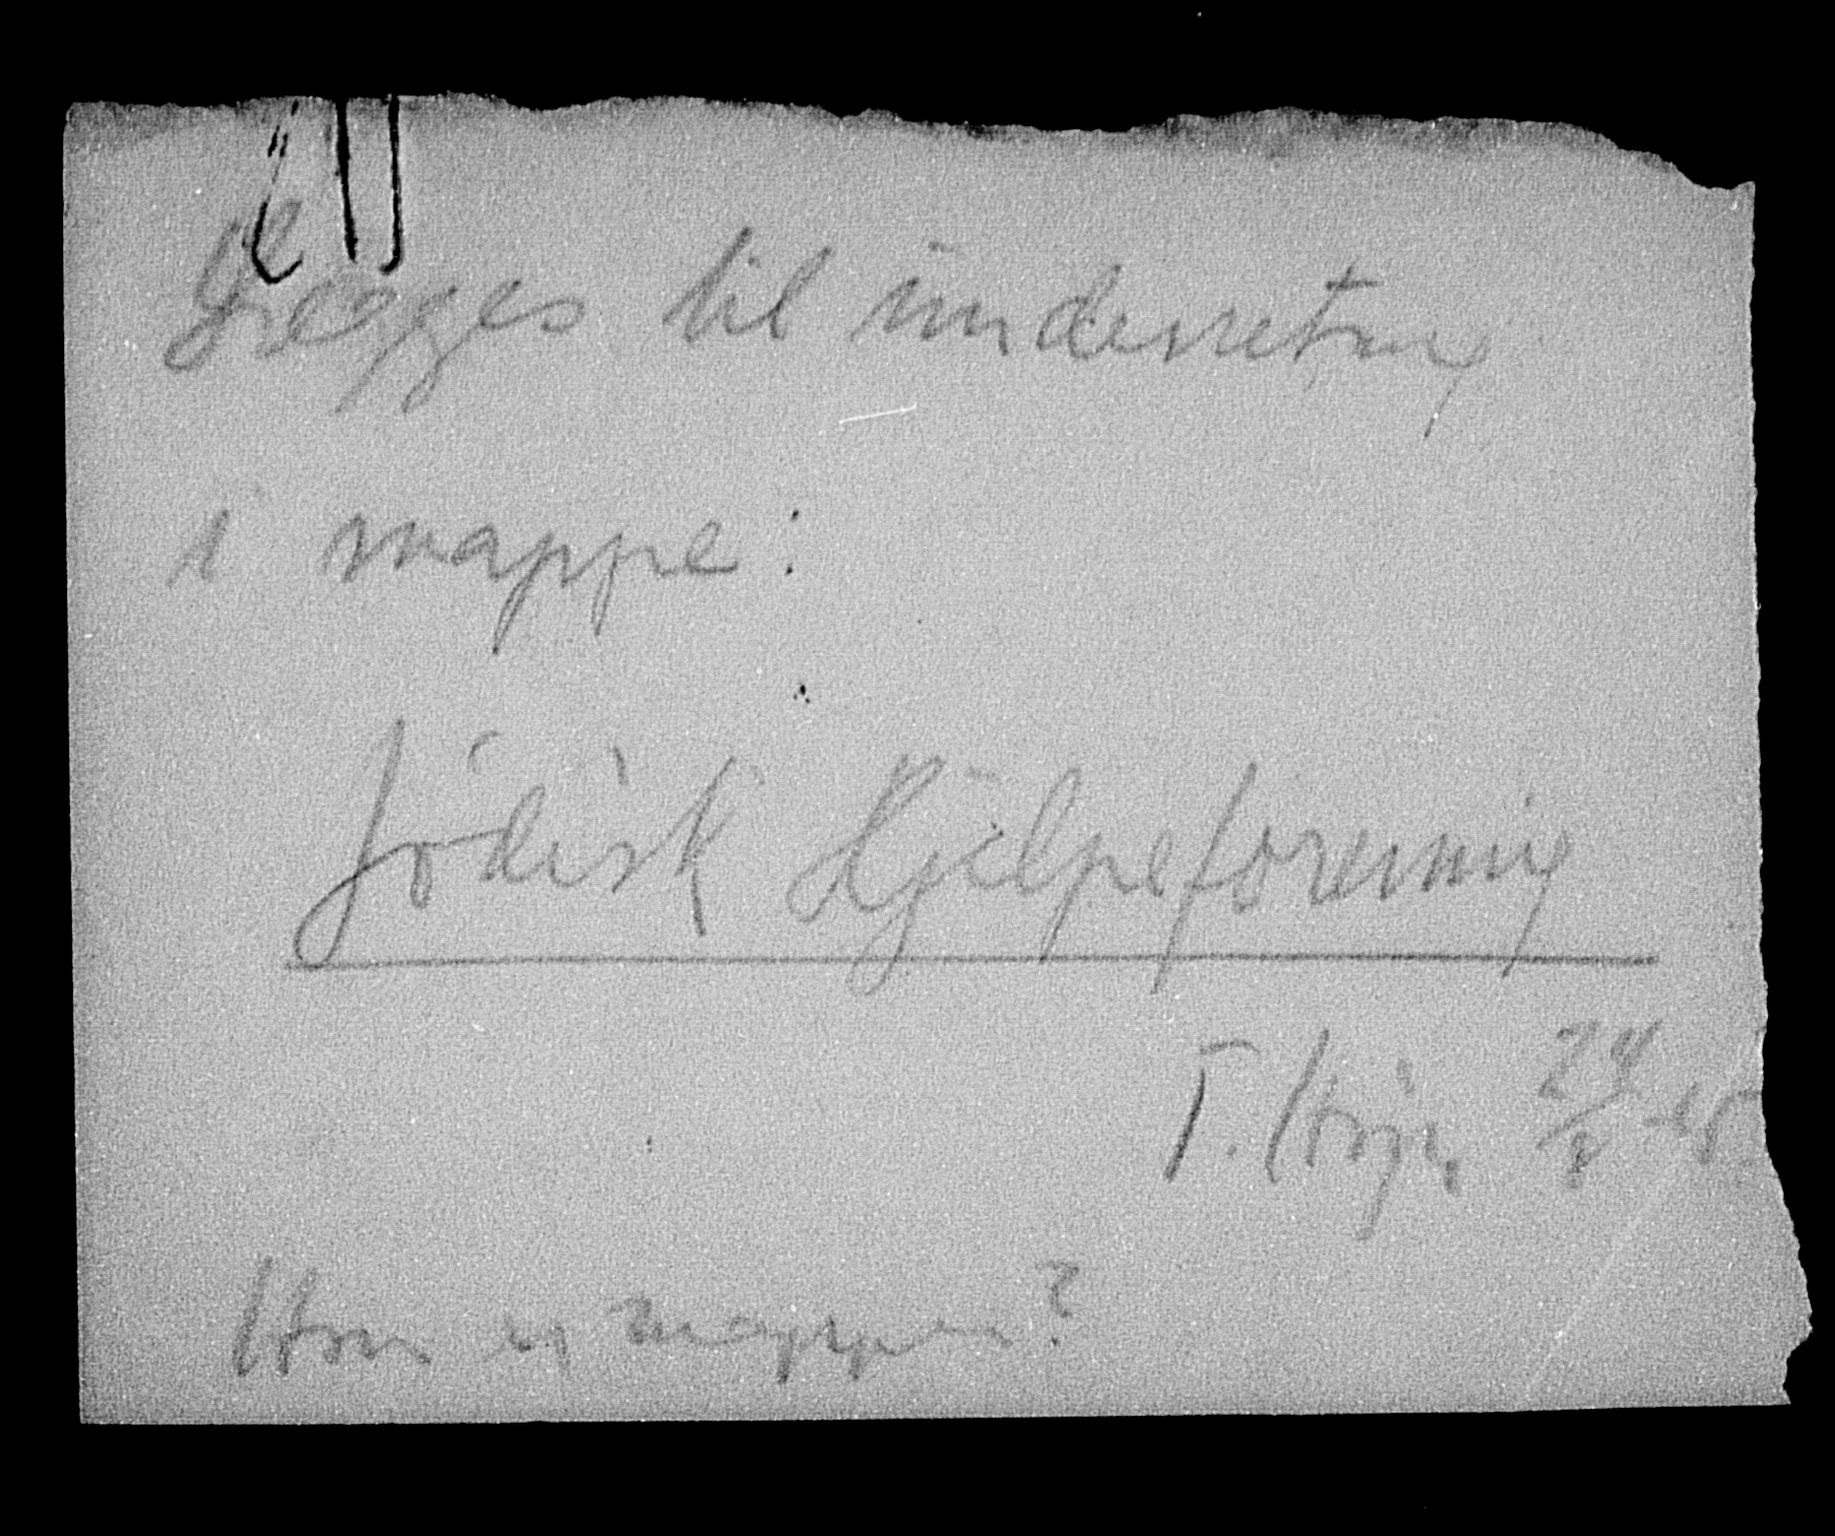 Lægges til underretning
i mappe:
Jødisk Hjelpeforening
T. 24/8-45
Hvor er mappen?